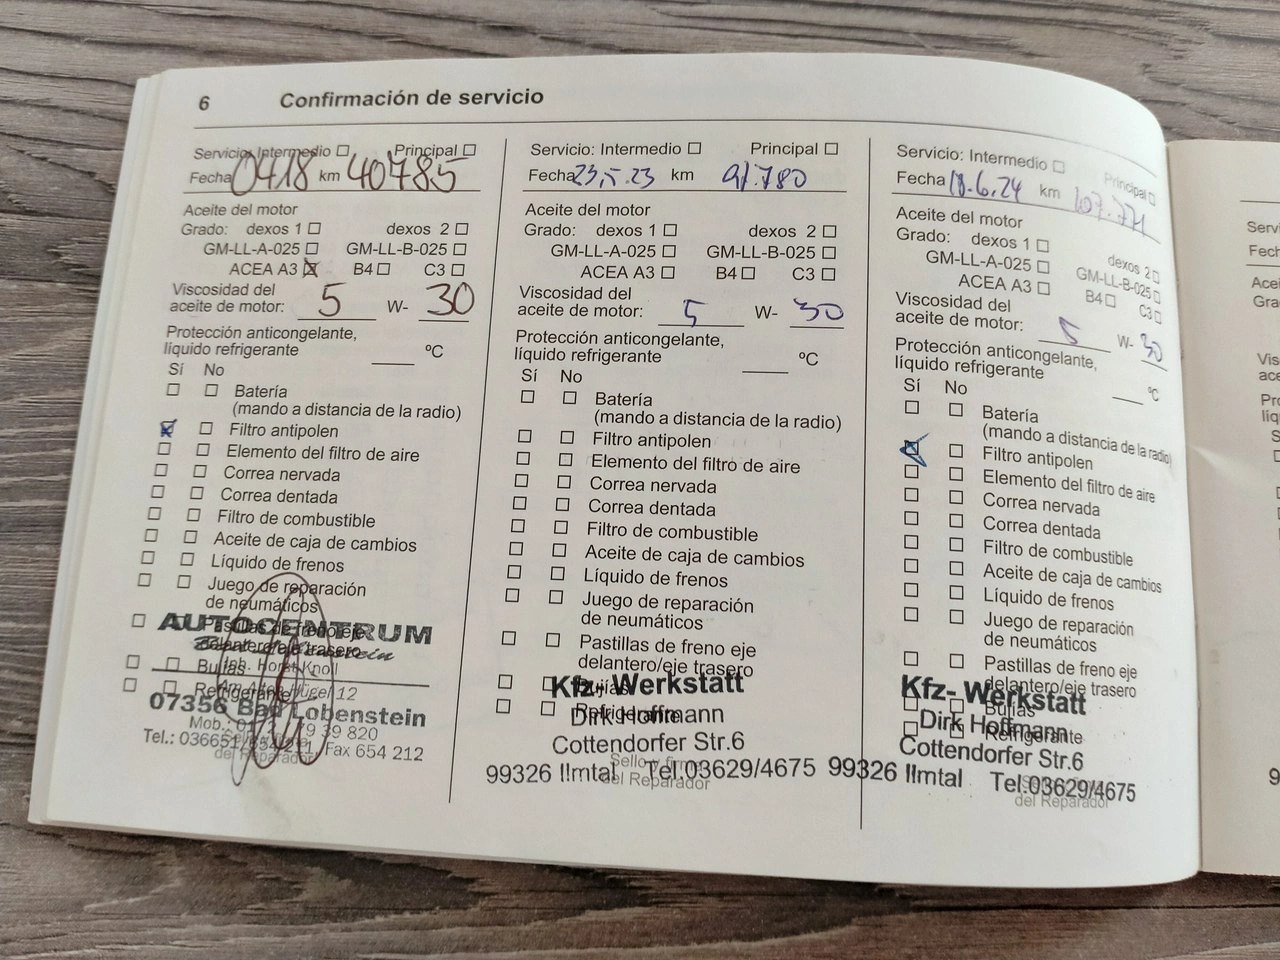 6 Confirmación de servicio
Servicio: Intermedio ☐ Principal ☐
Fecha 0418 km 40785
Aceite del motor
Grado: dexos 1 ☐ dexos 2 ☐
GM-LL-A-025 ☐ GM-LL-B-025 ☐
ACEA A3 ☒ B4 ☐ C3 ☐
Viscosidad del
aceite de motor: 5 W- 30
Protección anticongelante,
líquido refrigerante ___ ºC
Sí No
☐ ☐ Batería
(mando a distancia de la radio)
☒ ☐ Filtro antipolen
☐ ☐ Elemento del filtro de aire
☐ ☐ Correa nervada
☐ ☐ Correa dentada
☐ ☐ Filtro de combustible
☐ ☐ Aceite de caja de cambios
☐ ☐ Líquido de frenos
☐ ☐ Juego de reparación
de neumáticos
☐ ☐ Pastillas de freno eje
delantero/eje trasero
☐ ☐ Bujías
☐ ☐ Refrigerante
AUTOCENTRUM
Inh. Horst Knoll
07356 Bad Lobenstein
Mob.: 39 820
Tel.: 036651 Fax 654 212
del Reparador
Servicio: Intermedio ☐ Principal ☐
Fecha 23.5.23 km 91.780
Aceite del motor
Grado: dexos 1 ☐ dexos 2 ☐
GM-LL-A-025 ☐ GM-LL-B-025 ☐
ACEA A3 ☐ B4 ☐ C3 ☐
Viscosidad del
aceite de motor: 5 W- 30
Protección anticongelante,
líquido refrigerante ___ ºC
Sí No
☐ ☐ Batería
(mando a distancia de la radio)
☐ ☐ Filtro antipolen
☐ ☐ Elemento del filtro de aire
☐ ☐ Correa nervada
☐ ☐ Correa dentada
☐ ☐ Filtro de combustible
☐ ☐ Aceite de caja de cambios
☐ ☐ Líquido de frenos
☐ ☐ Juego de reparación
de neumáticos
☐ ☐ Pastillas de freno eje
delantero/eje trasero
☐ ☐ Bujías
☐ ☐ Refrigerante
Kfz- Werkstatt
Dirk Hoffmann
Cottendorfer Str.6
99326 Ilmtal Tel.03629/4675
Sello y firma
del Reparador
Servicio: Intermedio ☐ Principal ☐
Fecha 18.6.24 km 107.771
Aceite del motor
Grado: dexos 1 ☐ dexos 2 ☐
GM-LL-A-025 ☐ GM-LL-B-025 ☐
ACEA A3 ☐ B4 ☐ C3 ☐
Viscosidad del
aceite de motor: 5 W- 30
Protección anticongelante,
líquido refrigerante ___ ºC
Sí No
☐ ☐ Batería
(mando a distancia de la radio)
☒ ☐ Filtro antipolen
☐ ☐ Elemento del filtro de aire
☐ ☐ Correa nervada
☐ ☐ Correa dentada
☐ ☐ Filtro de combustible
☐ ☐ Aceite de caja de cambios
☐ ☐ Líquido de frenos
☐ ☐ Juego de reparación
de neumáticos
☐ ☐ Pastillas de freno eje
delantero/eje trasero
☐ ☐ Bujías
☐ ☐ Refrigerante
Kfz- Werkstatt
Dirk Hoffmann
Cottendorfer Str.6
99326 Ilmtal Tel.03629/4675
del Reparador